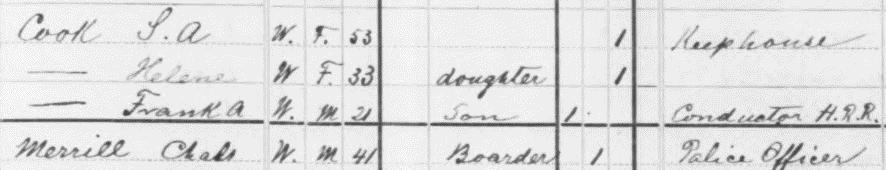 Cook S. A W. F. 53 1 Keephouse
— Helene W F. 33 doughter 1
— Frank A W. M 21 Son 1 Conductor H.R.R.
Merrill Chals W. M 41 Boarder 1 Palice Officer